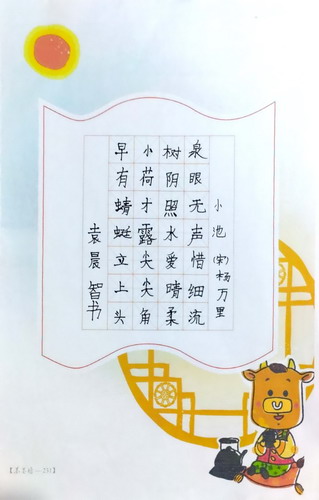 小池 (宋) 杨万里
泉眼无声惜细流
树阴照水爱晴柔
小荷才露尖尖角
早有蜻蜓立上头
袁晨智书